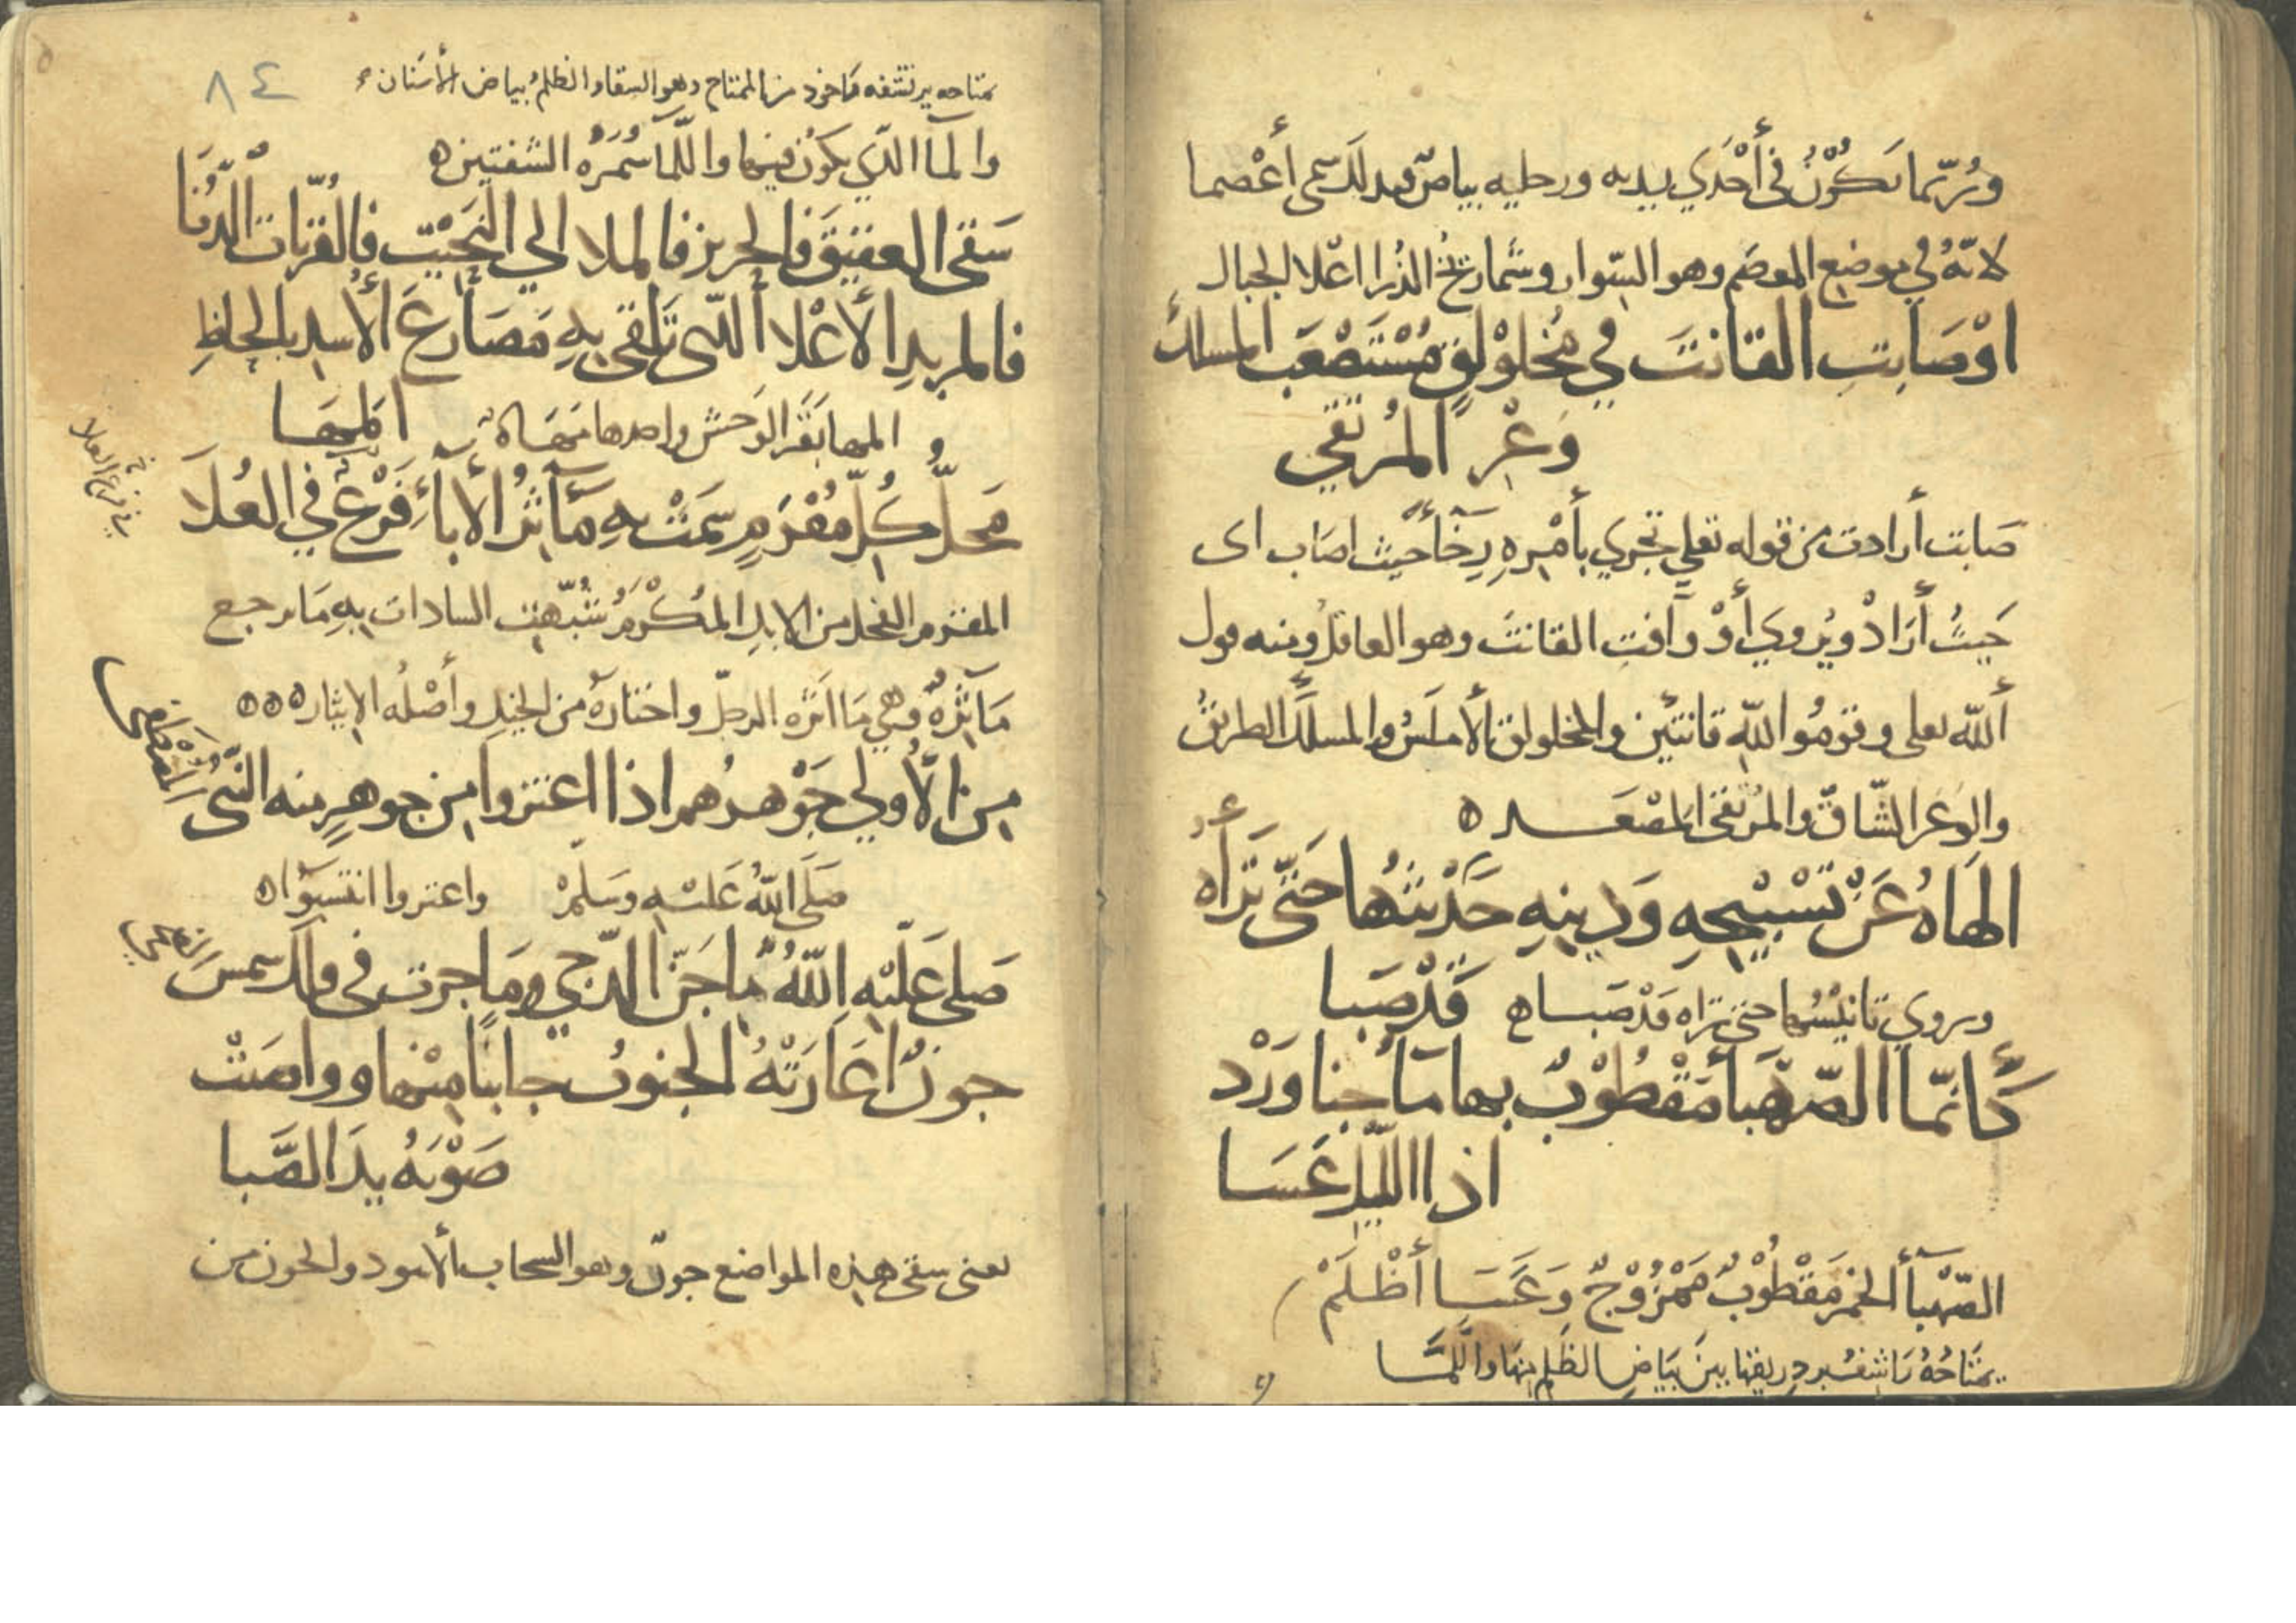 وَرُبَّمَا تَكُوْنُ فى أَحْدَي يديه ورجليه بياضٌ فبدلك سمى أعْصما
لانّهُ في موضع المعصَم وهو السّوار وشمارِيخُ الذُرا اعْلا الجبال
اوْ صَابتِ القانتَ في مُخلوْلقٍ مُسْتَصْعَب المسلك
وَعْرِ المُرْتقي
صَابت أرادت من قوله تعلي تجري بأمْرِهِ رِخَآً حيث اصَاب اى
حَيثُ أرَادْ ويُروي أوْ وَآفتِ القانتَ وهو العاقل ومنه قول
أللّه تعلى وقومُوا للّهِ قانتين والمخلولق الأملَسُ والمسلَك الطريقُ
والوَعَر الشّاقّ والمرْتقى المَصْعَد ه
الهَاهُ عَنْ تَسْبيْحِهِ وَدِينِهِ حَدِيْثُهَا حَتّى تَرَاهُ
ويروي تانيْسُها حتى تراه قَدْ صَبَا ه قَدْ صَبَا
كَأنمّا الصّهْبَأ مَقْطُوْبٌ بها مَآ جنا وَرْد
اذا الليلُ عَسَا
الصّهْبَآأ الخمرَ مَقْطُوْبٌ مَمْزُوْجٌ وَعَسَا أظْلَمْ
يمتَاحُهُ رَاشِفُ بردِ ريقها بينَ بَيَاضِ الظَلم منها واللَّمَا
٨٤
يمتاحه يرتشفه مأخوذ من الممتاح وهو السقا والظلمُ بياض الأسنان
والمآ الذي يكون فيها واللّمَا سُمْرَةُ الشفتين ه
سَقى العقيقَ فالحريز فالملا الي النحيت فالقُرّيات الدُنا
فالمربدِ الأعْلا ألتى تلقى بهِ مَصَارعَ الأسدِ بالحاظِ
و المها بَقَر الوَحش واحدها مَهَاة المَهَا
مَحلُّ كُلّ مُقْرَمٍ سَمَتْ بهِ مَآثرُ الأبآءِ فَرْعٌ في العُلَا
في فرع العلا
المقرم الفحل من الابِلِ المُكْرَمُ شُبّهت السادات بهِ مَا يرجع
مَآثرُهُ وهي مَا اثره الرجل واختارهُ من الخيل وأصْلُه الايثار ه ه ه
مِن الأُولي جَوْهرُهم اذا اعتزوا من جوهرٍ منه النّبى
المُصْطَفى
صَلّى اللهُ عَليْهِ وسَلّمْ واعتزوا انتسَبوا ه
صَلى عَلَيْهِ اللّهُ مَا جَنّ الدّجي ومَا جرت فى فلك شمسَ
الضحي
جونٌ اعَارَتْهُ الجنوبُ جانبًا مِنْها وواصَتْ
صَوْبَهُ يدَ الصّبا
يعنى سقى هذه المواضع جونٌ وهو السحاب الأسود والجون من